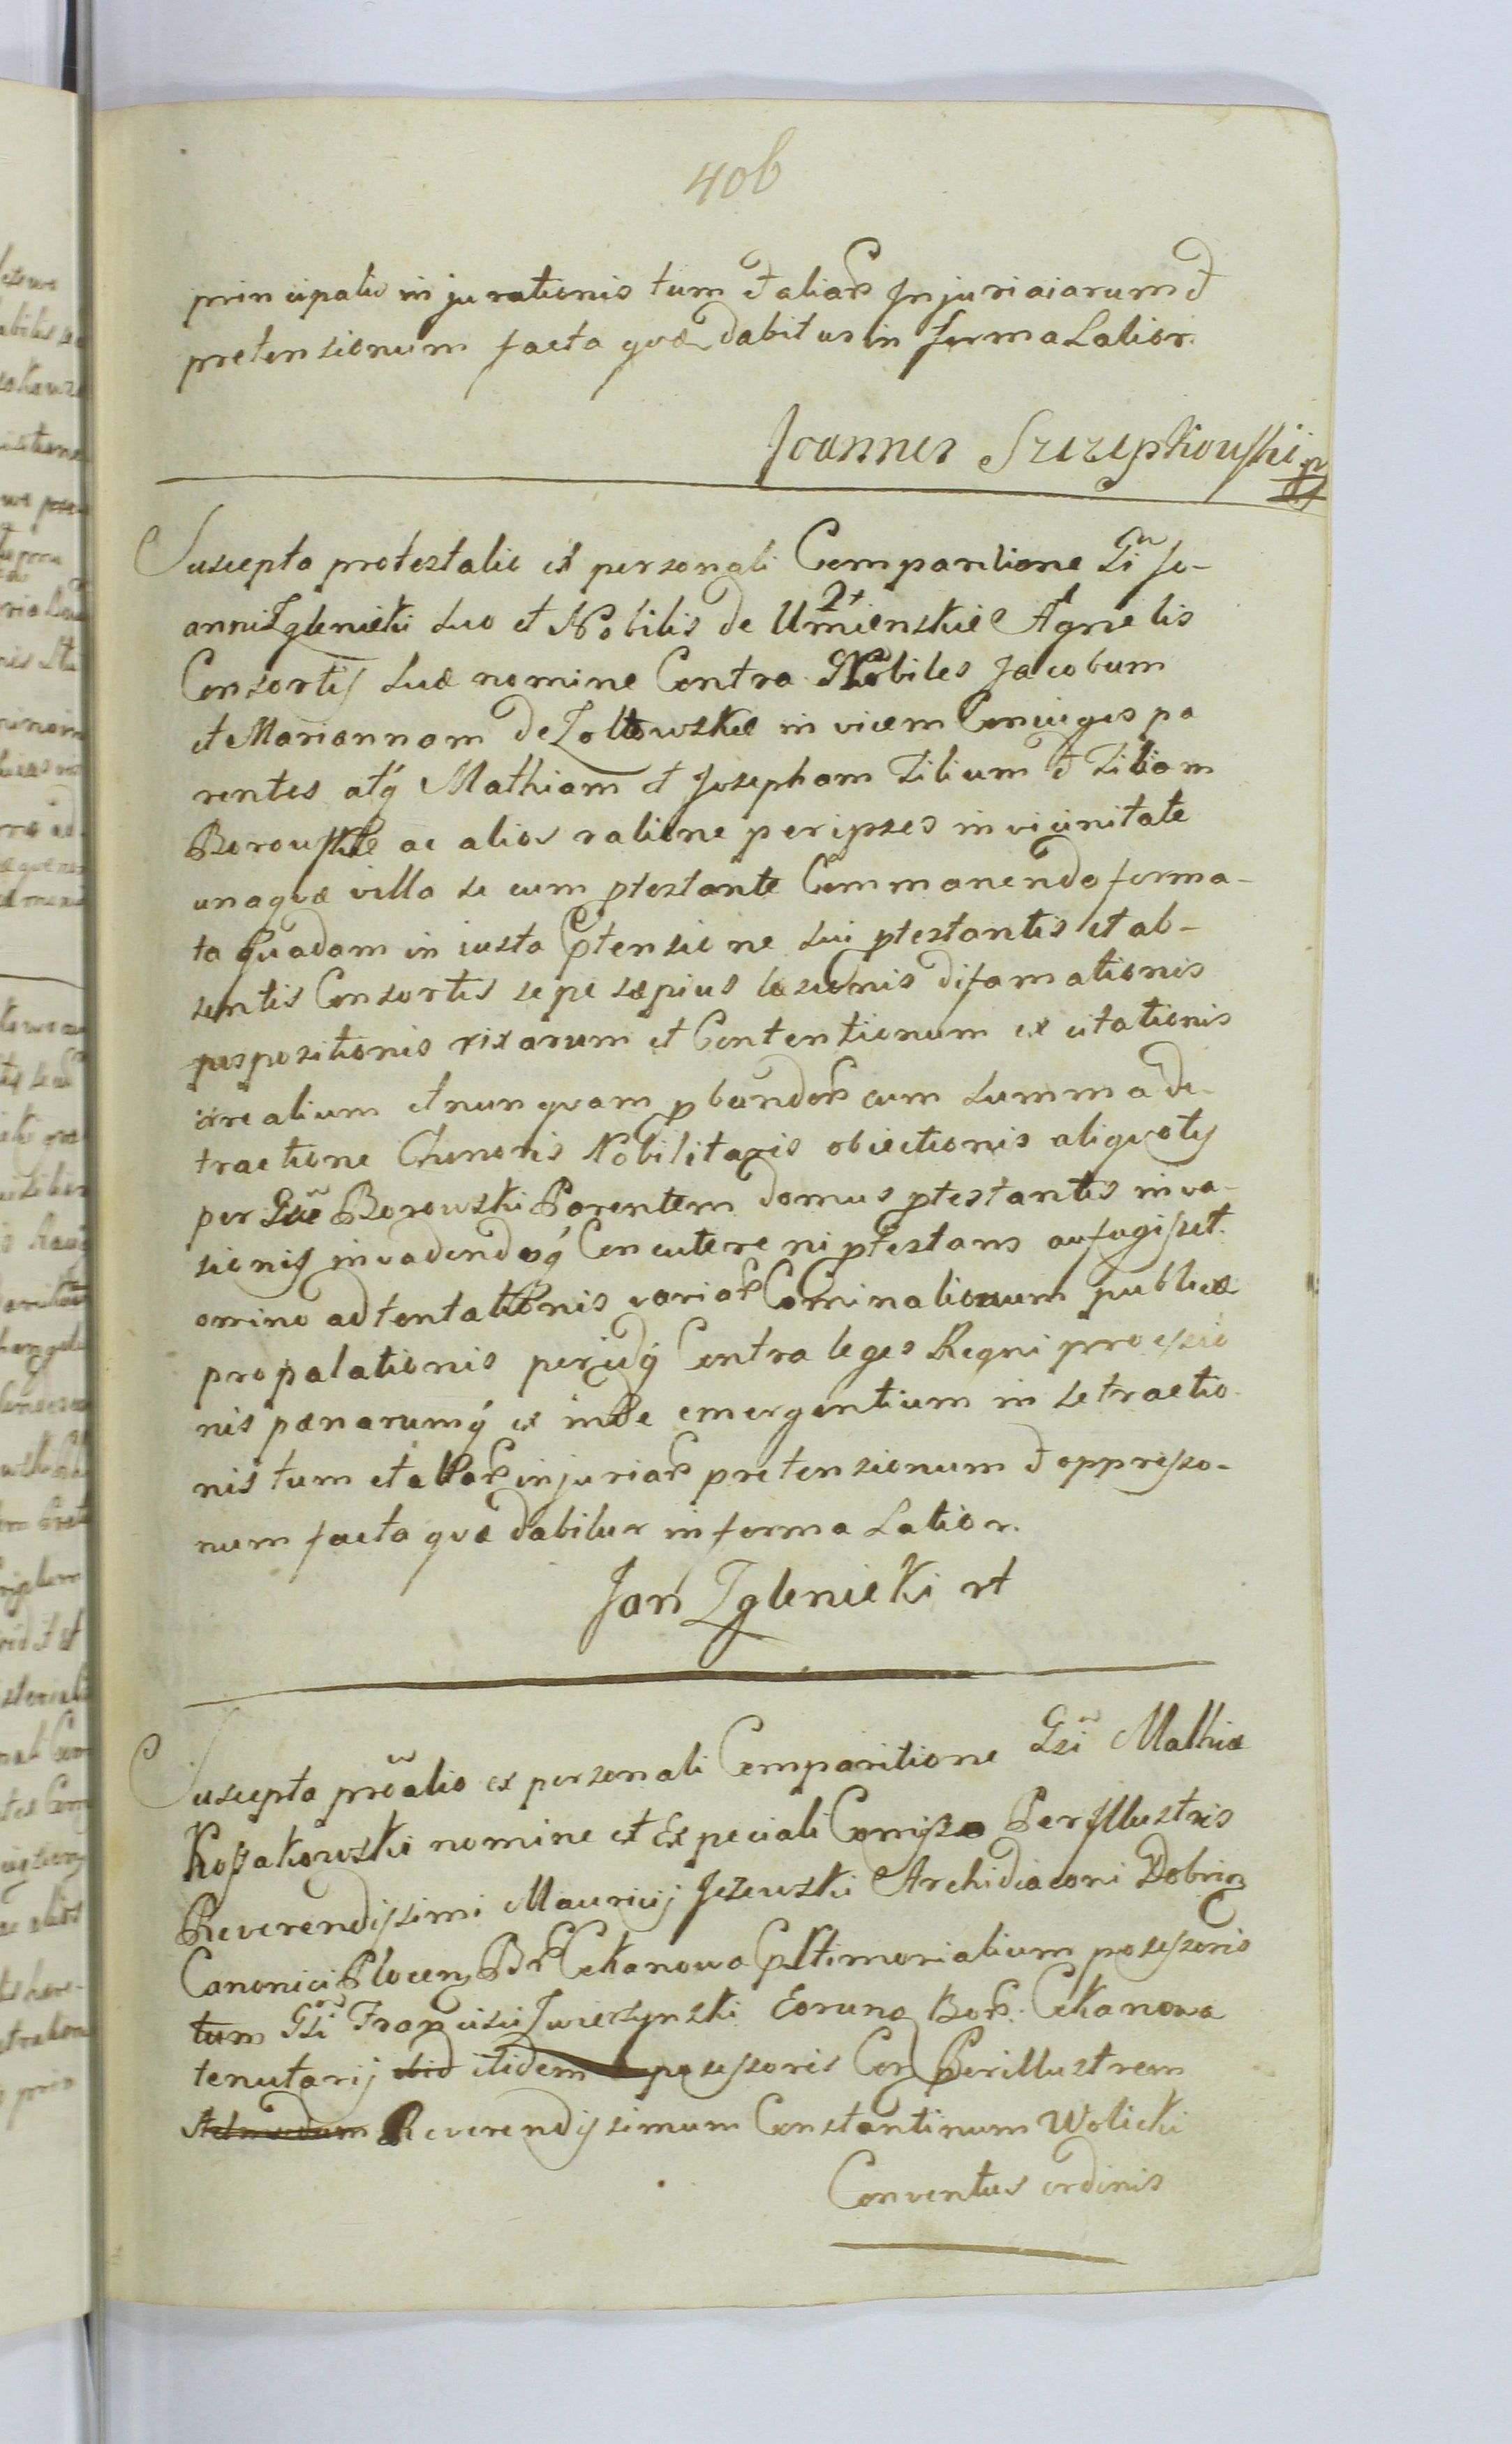 406
principalis injurationis tum et aliar Injuriaiarum et
pretensionum facta quæ dabitur in forma Latior.
Joannes Szczepkowski
Suscepta protestatio ex personali Comparitione Gñi Jo-
annis Zglenicki suo et Nobilis de Umienskie Agnetis
Consortis suæ nomine Contra Nobiles Jacobum
et Mariannam de Zoltowskie in vicem Coniuges pa
rentes atq́ Mathiam et Josepham Filium et Filiam
Borowskie ac alios ratione per ipses in vicinitate
unaquæ villa se cum ptestante Commanendo forma-
ta quadam in iusta Ptensione sui ptestantis et ab-
sentis Consortis sepe sæpius læsionis difamationis
pospositionis rixarum et Contentionum excitationis
irrealium et nunquam pbandor cum summa de-
tractione Chonoris Nobilitaris obiectionis aliquotis
per Borowski Parentem domus ptestantis inva-
sionis invadendoq́ Concutere ni ptestans aufugisset
omino adtentationis variar Cominationum publicæ
propalationis perjudq́ Contra leges Regni processio
nis pænarumq́ ex inde emergentium in se tractio-
nis tum et aliar injuriar pretensionum et oppresso-
num facta quæ dabitur in forma Latior.
Jan Zglenicki
Suscepta prõatio ex personali Comparitione Gsi Mathiæ
nomine et Expeciali Comisso Perjllustris
Reverendissimi Mauricij Jezewski Archidiaconi Dobrin
Canonici Plocen Br Cekanowa possessoris
tum Gsi Francisci Zwierzynski Eorund Bor. Cekanowa
tenutarij ibid itidem possessoris Con Perillustrem
Reverendissimum Constantinum Wolicki
Conventus ordinis